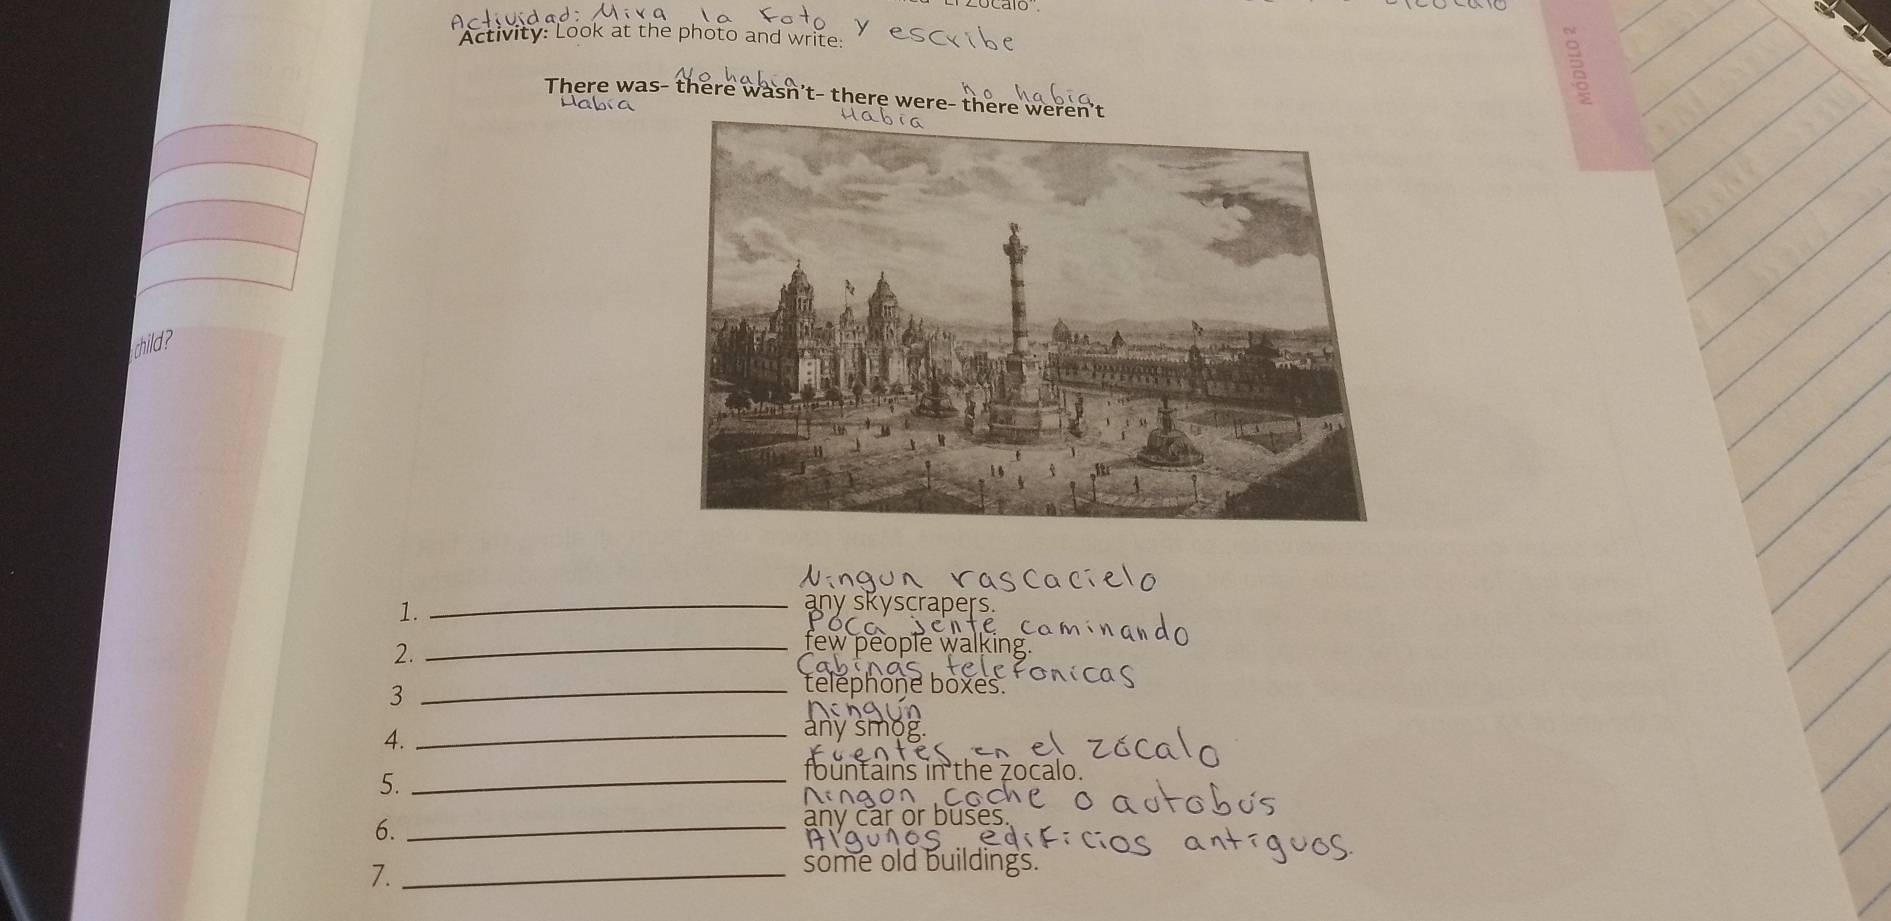 El Zócalo".
Actividad: Mira la foto y escribe
Activity: Look at the photo and write:
No había no había
There was- there wasn't- there were- there weren't
Había Había
MÓDULO 2
child?
Ningun rascacielo
1. any skyscrapers.
Poca jente caminando
2. few people walking.
Cabinas telefonicas
3 telephone boxes.
ningún
4. any smog.
Fuentes en el zócalo
5. fountains in the zocalo.
ningon coche o autobús
6. any car or buses.
Algunos edificios antiguos.
7. some old buildings.